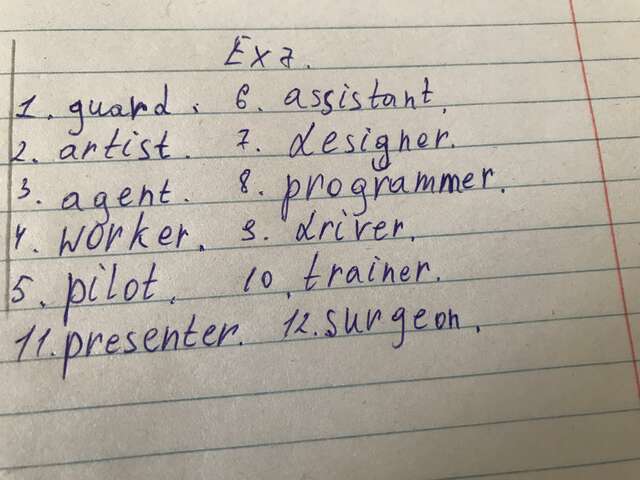 Ex 7.
1. guard. 6. assistant.
2. artist. 7. designer.
3. agent. 8. programmer.
4. worker. 9. driver.
5. pilot. 10. trainer.
11. presenter. 12. surgeon.